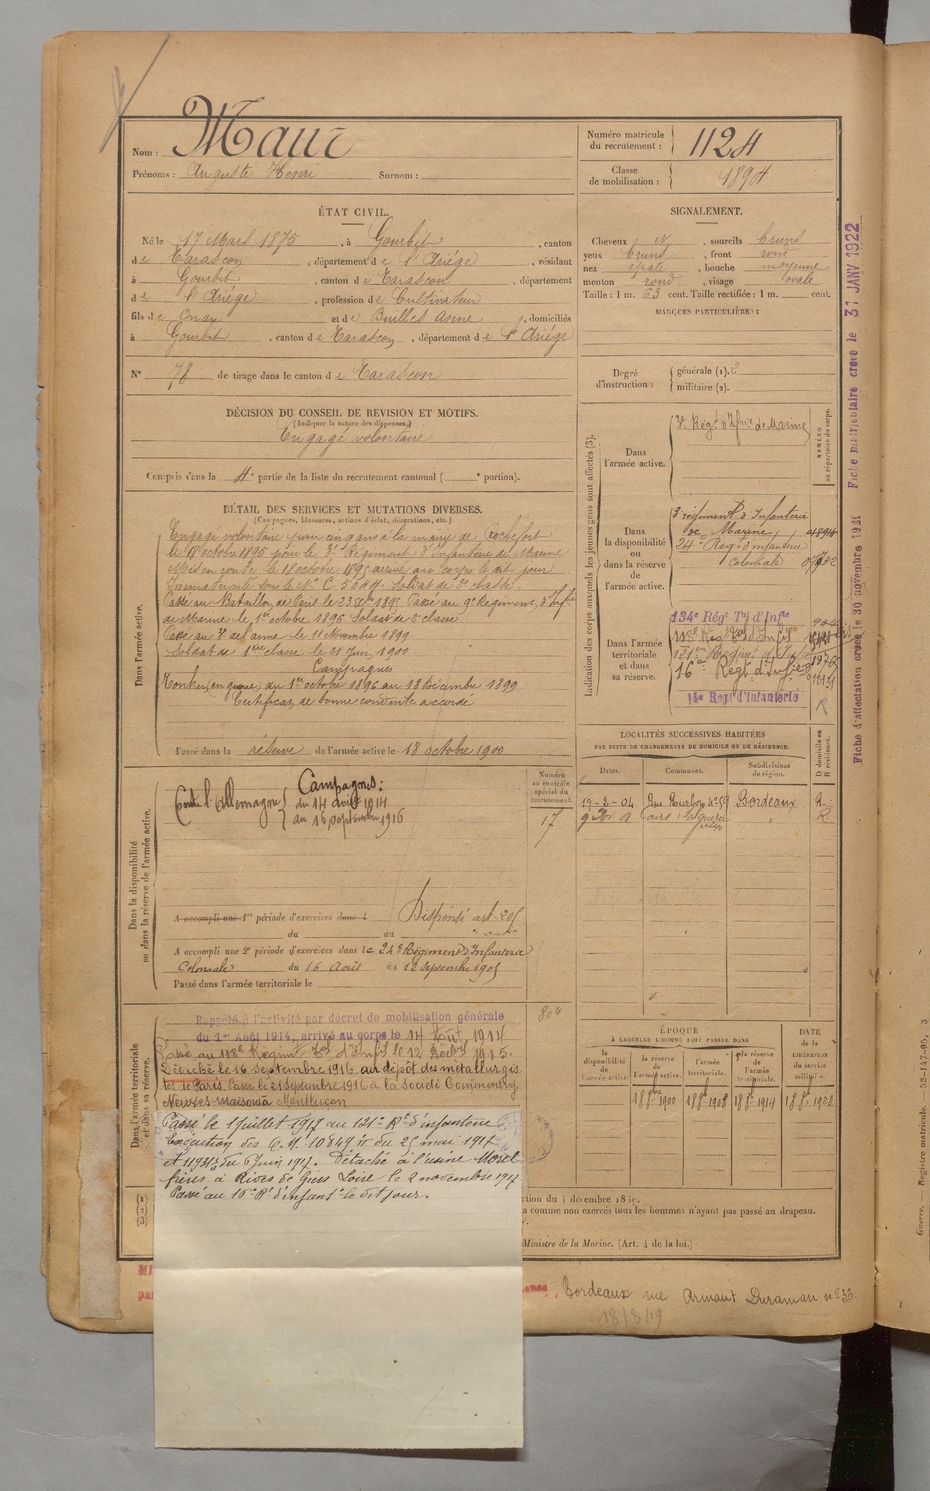 Nom : Maur
Prénoms : Auguste Henri Surnom :
Numéro matricule du recrutement : 1124
Classe de mobilisation : 1894
ÉTAT CIVIL.
Né le 17 Mars 1875, à Gourbit, canton
de Tarascon, département de l'Ariège, résidant
à Gourbit, canton de Tarascon, département
de l'Ariège, profession de Cultivateur
fils de et de Anne, domiciliés
à Gourbit, canton de Tarascon, département de l'Ariège
N° 78 de tirage dans le canton de Tarascon
DÉCISION DU CONSEIL DE REVISION ET MOTIFS.
(Indiquer la nature des dispenses.)
Engagé volontaire
Compris dans la 4e partie de la liste du recrutement cantonal ( e portion).
DÉTAIL DES SERVICES ET MUTATIONS DIVERSES.
(Campagnes, blessures, actions d'éclat, décorations, etc.)
Dans l'armée active.
Engagé volontaire pour cinq ans à la mairie de Rochefort
le 18 octobre 1895 pour le 3e Régiment d'Infanterie de Marine
Mis en route le 18 octobre 1895 arrivé au corps le dit jour
Immatriculé sous le N° C Soldat de 2e classe
Passé au Bataillon de Paris le 23 1895 Passé au 9e Régiment d'Infie
de Marine le 1er octobre 1896 Soldat de 2e classe
Passé au 7e de l'arme le 11 Novembre 1899
Soldat de 1ère classe le 21 Juin 1900
Campagnes
Tonkin en guerre, du 1er octobre 1896 au 18 Décembre 1899
Certificat de bonne conduite accordé
Passé dans la réserve de l'armée active le 18 octobre 1900
Dans la disponibilité ou dans la réserve de l'armée active.
Numéro au contrôle spécial du recrutement.
17
Campagnes :
Contre l'Allemagne du 14 août 1914
au 16 septembre 1916
A accompli une 1re période d'exercices dans l Dispensé art. 205
du au
A accompli une 2e période d'exercices dans le 24e Régiment d'Infanterie
Coloniale du 16 Août au 12 septembre 1905
Passé dans l'armée territoriale le
Dans l'armée territoriale et dans sa réserve.
804
Rappelé à l'activité par décret de mobilisation générale
du 1er Août 1914, arrivé au corps le 14 Août 1914
Passé au 118e Régiment Tal d'Infie le 12 1915.
Détaché le 16 septembre 1916 au dépôt des métallurgis
tes de Paris. Passé le 21 septembre 1916 à la Société Commentry
Neuves maisons Montluçon
Passé le 1 juillet 1917 au 121e Rt d'infanterie
Exécution des C.M. 10849 du 25 mai 1917
et 11931 du 6 Juin 1917. Détaché à l'usine Morel
frères à Rives de Giers Loire le 2 novembre 1917
Passé au 16e Rt d'infante le dit jour.
SIGNALEMENT.
Cheveux et sourcils bruns
yeux bruns, front rond
nez épaté, bouche moyenne
menton rond, visage ovale
Taille : 1 m. 63 cent. Taille rectifiée : 1 m. cent.
MARQUES PARTICULIÈRES :
Degré d'instruction : générale (1).
militaire (2).
Indication des corps auxquels les jeunes gens sont affectés (3).
NUMÉRO au répertoire du corps.
Dans l'armée active.
3e Régt d'Infie de Marine
Dans la disponibilité ou dans la réserve de l'armée active.
3e régiment d'Infanterie
de Marine
24e Régt d'infanterie
coloniale
Dans l'armée territoriale et dans sa réserve.
134e Régt Tal d'Infie
118e Régt Tal d'Infie
121e Régt d'Inf
16e Régt d'Infie
14e Regt d'Infanterie
R
LOCALITÉS SUCCESSIVES HABITÉES
PAR SUITE DE CHANGEMENTS DE DOMICILE OU DE RÉSIDENCE.
Dates. Communes. Subdivisions de région. D domicile ou R résidence.
19-2-04 Rue Bourbon n° 59 Bordeaux R
R
ÉPOQUE
À LAQUELLE L'HOMME DOIT PASSER DANS
la disponibilité de l'armée active.
la réserve de l'armée active.
l'armée territoriale.
la réserve de l'armée territoriale.
DATE de la LIBÉRATION du service militaire.
18 8bre 1900
18 8bre 1908
18 8bre 1914
18 8bre 1920
(1)
(2)
(3)
ction du 4 décembre 18
a comme non exercés tous les hommes n'ayant pas passé au drapeau.
Ministre de la Marine. (Art. 4 de la loi.)
Bordeaux rue Armant n° 33
18/8/19
Fiche d'affectation créée le 30 novembre 19
Fiche matriculaire créée le 31 JANV 1922
Guerre. — Registre matricule. — 52-17-95.